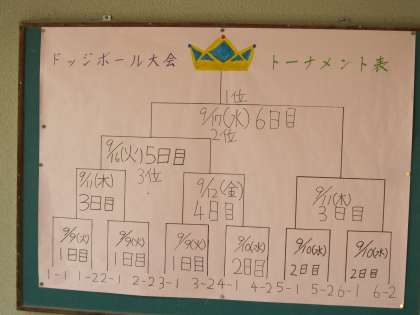 ドッジボール大会 トーナメント表
1位
9/17(水) 6日目
2位
9/16(火) 5日目
3位
9/11(木) 9/12(金) 9/11(木)
3日目 4日目 3日目
9/9(火) 9/9(火) 9/9(火) 9/10(水) 9/10(水) 9/10(水)
1日目 1日目 1日目 2日目 2日目 2日目
1-1 1-2 2-1 2-2 3-1 3-2 4-1 4-2 5-1 5-2 6-1 6-2